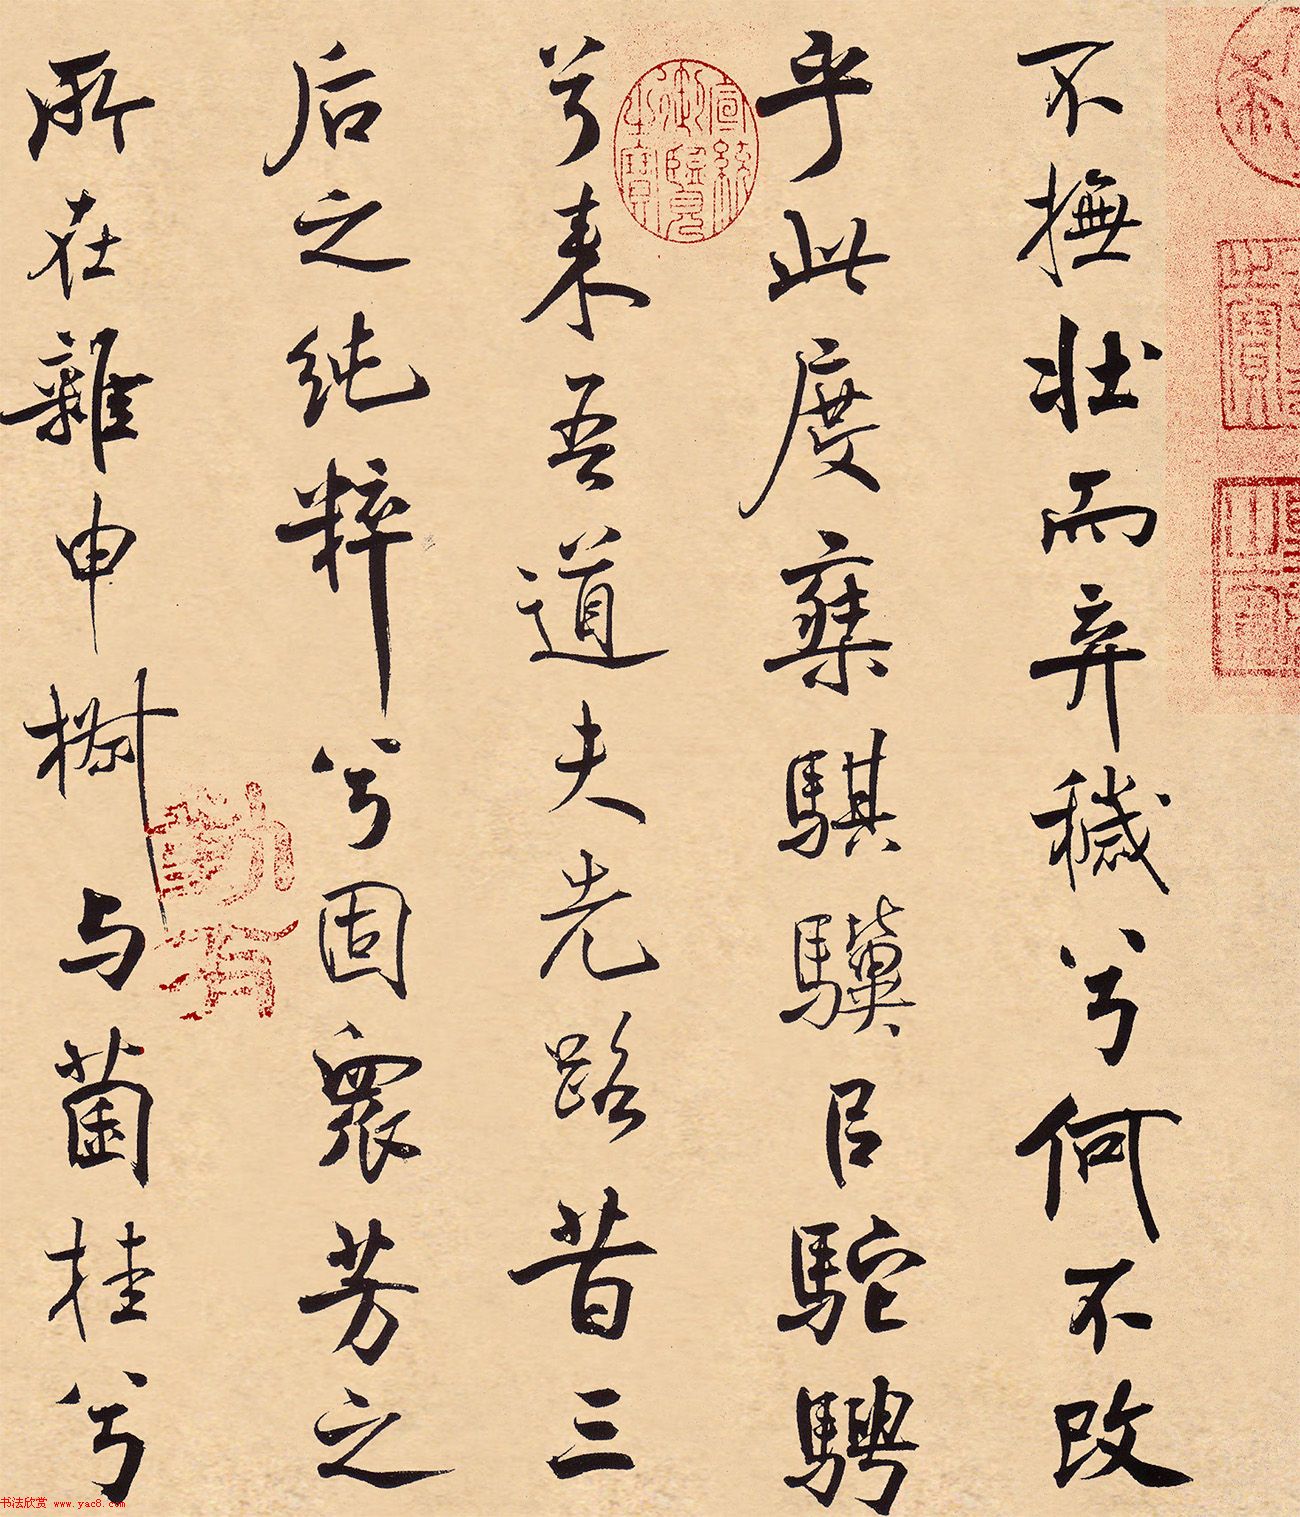 不撫壯而弃穢兮何不改
乎此度椉騏驥㠯駝騁
兮来吾道夫先路昔三
后之純粹兮固衆芳之
所在雜申椒与菌桂兮
宣統御覽之寶
勤有
书法欣赏 www.yac8.com